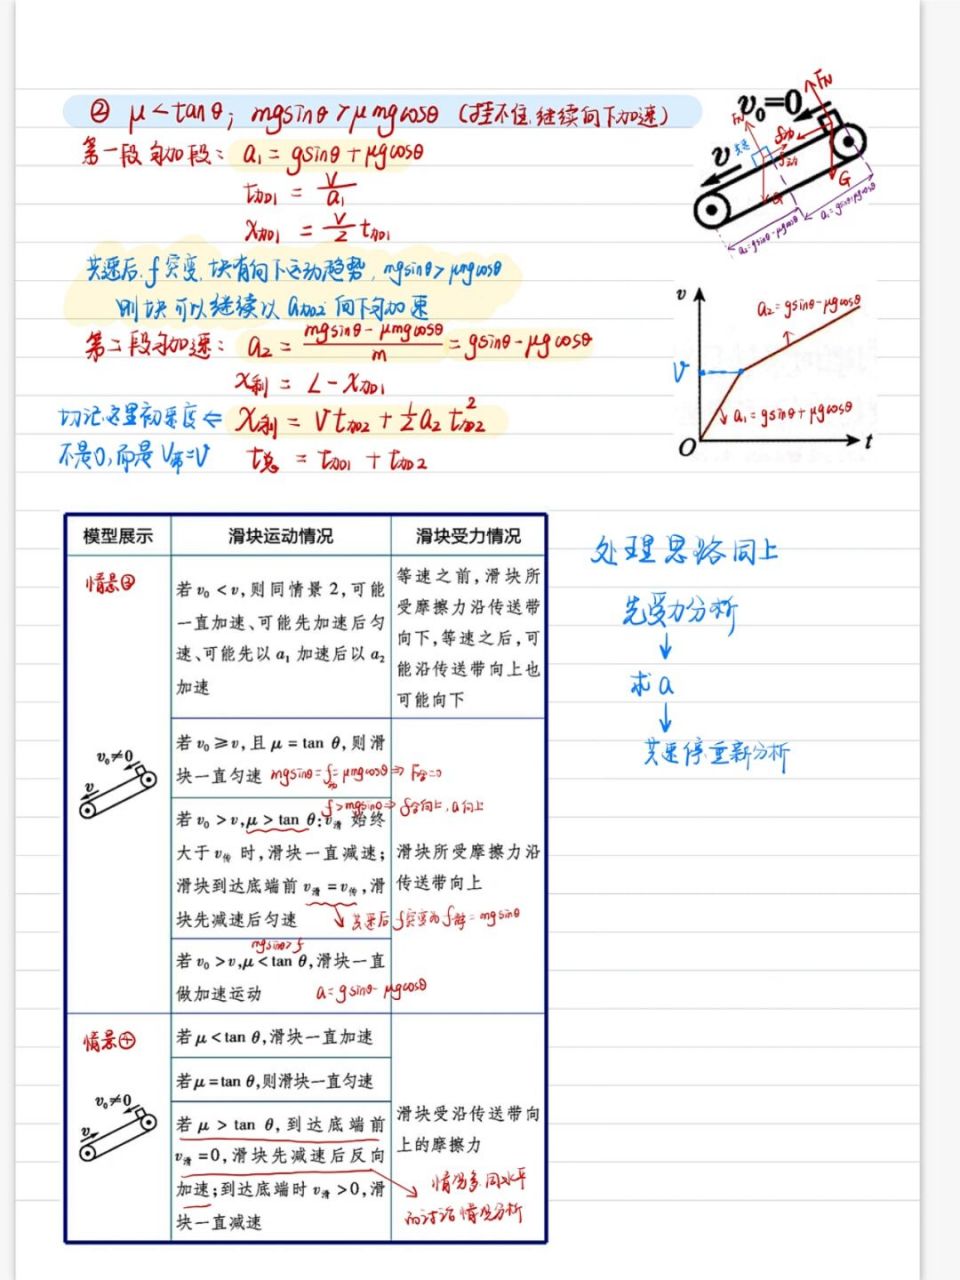 ② μ<tanθ; mgsinθ>μmgcosθ (拦不住,继续向下加速)
第一段匀加段: a₁=gsinθ+μgcosθ
t加1 = v/a₁
x加1 = v/2 t加1
共速后,f突变,块有向下运动趋势,mgsinθ>μmgcosθ
则块可以继续以a加2向下匀加速
第二段匀加速: a₂= (mgsinθ-μmgcosθ)/m = gsinθ-μgcosθ
x剩 = L-x加1
切记这里初速度 ⇐ x剩 = vt加2 + ½a₂t加2²
不是0,而是V带=V
t总 = t加1 + t加2
v₀=0
FN
v
共速
FN
G
G
a₂=gsinθ-μgcosθ
a₁=gsinθ+μgcosθ
v
a₂=gsinθ-μgcosθ
V
a₁=gsinθ+μgcosθ
O
t
模型展示
滑块运动情况
滑块受力情况
情景③
v₀≠0
v
若v₀<v,则同情景2,可能
一直加速、可能先加速后匀
速、可能先以a₁加速后以a₂
加速
等速之前,滑块所
受摩擦力沿传送带
向下,等速之后,可
能沿传送带向上也
可能向下
若v₀≥v,且μ=tan θ,则滑
块一直匀速 mgsinθ=f=μmgcosθ⇒F合=0
f>mgsinθ⇒f合向上,a向上
若v₀>v,μ>tan θ:v滑 始终
大于v传 时,滑块一直减速;
滑块到达底端前v滑=v传,滑
块先减速后匀速
共速后f突变为f静=mgsinθ
滑块所受摩擦力沿
传送带向上
mgsinθ>f
若v₀>v,μ<tan θ,滑块一直
做加速运动 a=gsinθ-μgcosθ
情景④
v₀≠0
v
若μ<tan θ,滑块一直加速
若μ=tan θ,则滑块一直匀速
若μ>tan θ,到达底端前
v滑=0,滑块先减速后反向
加速;到达底端时v滑>0,滑
块一直减速
滑块受沿传送带向
上的摩擦力
情况多,同水平
的讨论情况分析
处理思路同上
先受力分析
↓
求a
↓
共速停重新分析